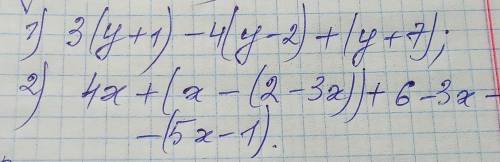 1) 3(y+1)-4(y-2)+(y+7);
2) 4x+(x-(2-3x))+6-3x-
-(5x-1).